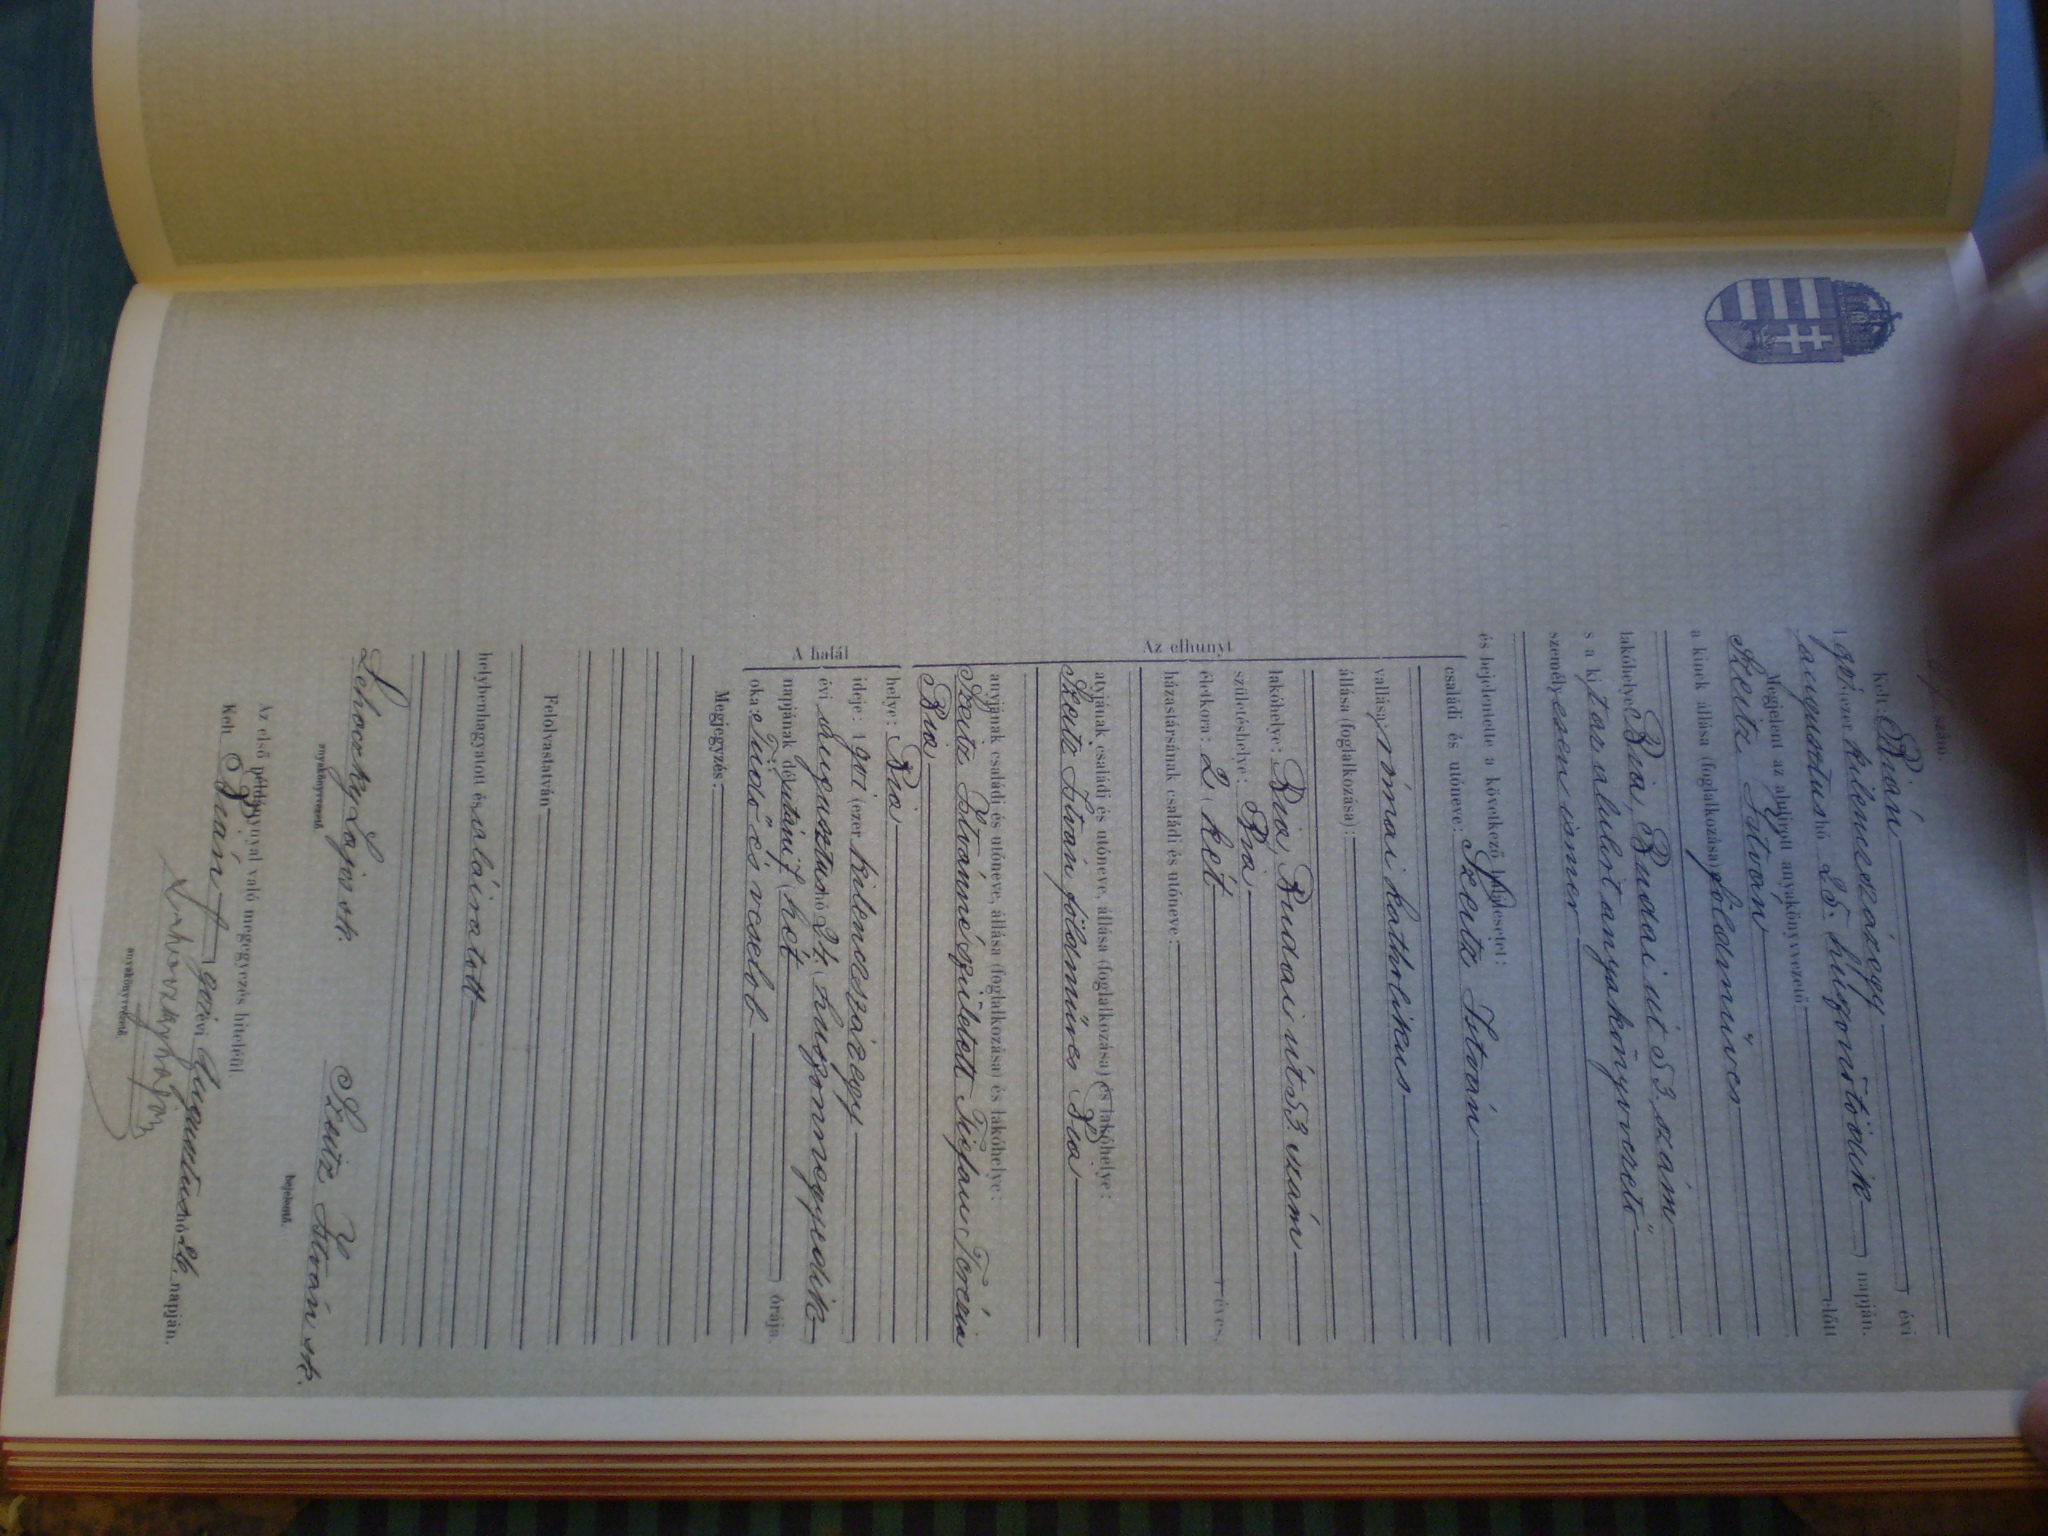 szám.
Kelt Bián évi
1901 (ezer kilenczszázegy
augusztus hó 25. (huszonötödik) napján.
Megjelent az alulirott anyakönyvvezető előtt
Szeitz István
a kinek állása (foglalkozása) földmüves
lakóhelye Bia, Budai út 53. szám
s a kit az alulirt anyakönyvvezető
személyesen ismer
és bejelentette a következő halálesetet:
családi és utóneve: Szeitz István
vallása: római katholikus
állása (foglalkozása):
lakóhelye: Bia, Budai út 53. szám
születéshelye: Bia
életkora: 2 (két éves.
házastársának családi és utóneve:
atyjának családi és utóneve, állása (foglalkozása) és lakóhelye:
Szeitz István földmüves Bia
anyjának családi és utóneve, állása (foglalkozása) és lakóhelye:
Szeitz Istvánné született Terézia
Bia
Az elhunyt
helye: Bia
ideje: 1901 (ezer kilenczszázegy
évi augusztus hó 24. (huszonnegyedik)
napjának délutáni 7 (hét) órája.
oka: Tüdő és vese lob
A halál
Megjegyzés:
Felolvastatván,
helybenhagyatott és aláiratott
Lehoczky Lajos sk. Szeitz István sk.
anyakönyvvezető. bejelentő.
Az első példánynyal való megegyezés hiteléül
Kelt Bián, 1901 évi Augusztus hó 26. napján.
Lehoczky Lajos
anyakönyvvezető.